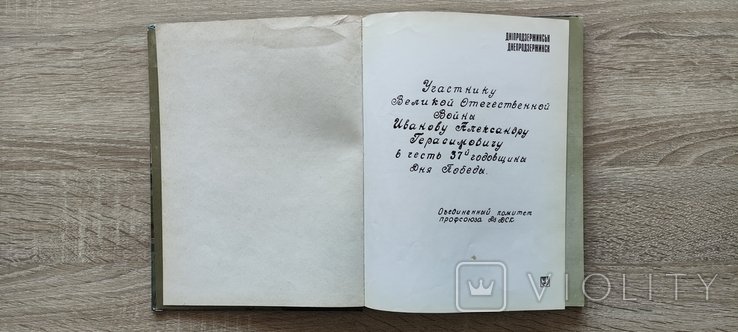 ДНІПРОДЗЕРЖИНСЬК
ДНЕПРОДЗЕРЖИНСК
Участнику
Великой Отечественной
Войны
Иванову Александру
Герасимовичу
в честь 37й годовщины
Дня Победы.
Объединенный комитет
профсоюза
VIOLITY